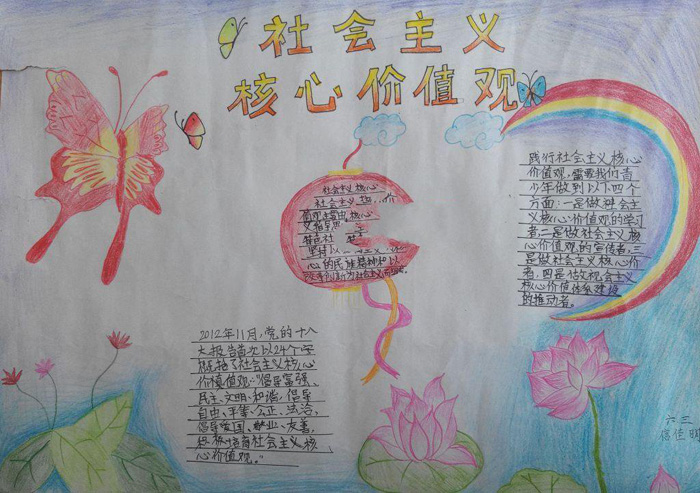 社会主义
核心价值观
社会主义核心
践行社会主义核心
价值观,需要我们青
少年做到以下四个
方面:一是做社会主
义核心价值观的学习
者,二是做社会主义核
心价值观的宣传者,三
是做社会主义核心价
者,四是做社会主义
核心价值体系建设
的推动者。
坚持以
心的民族精神和以
2012年11月,党的十八
大报告首次以24个字
概括了社会主义核心
价值观:“倡导富强、
民主、文明、和谐,倡导
自由、平等、公正、法治,
倡导爱国、敬业、友善,
积极培育社会主义核
心价值观。”
六三